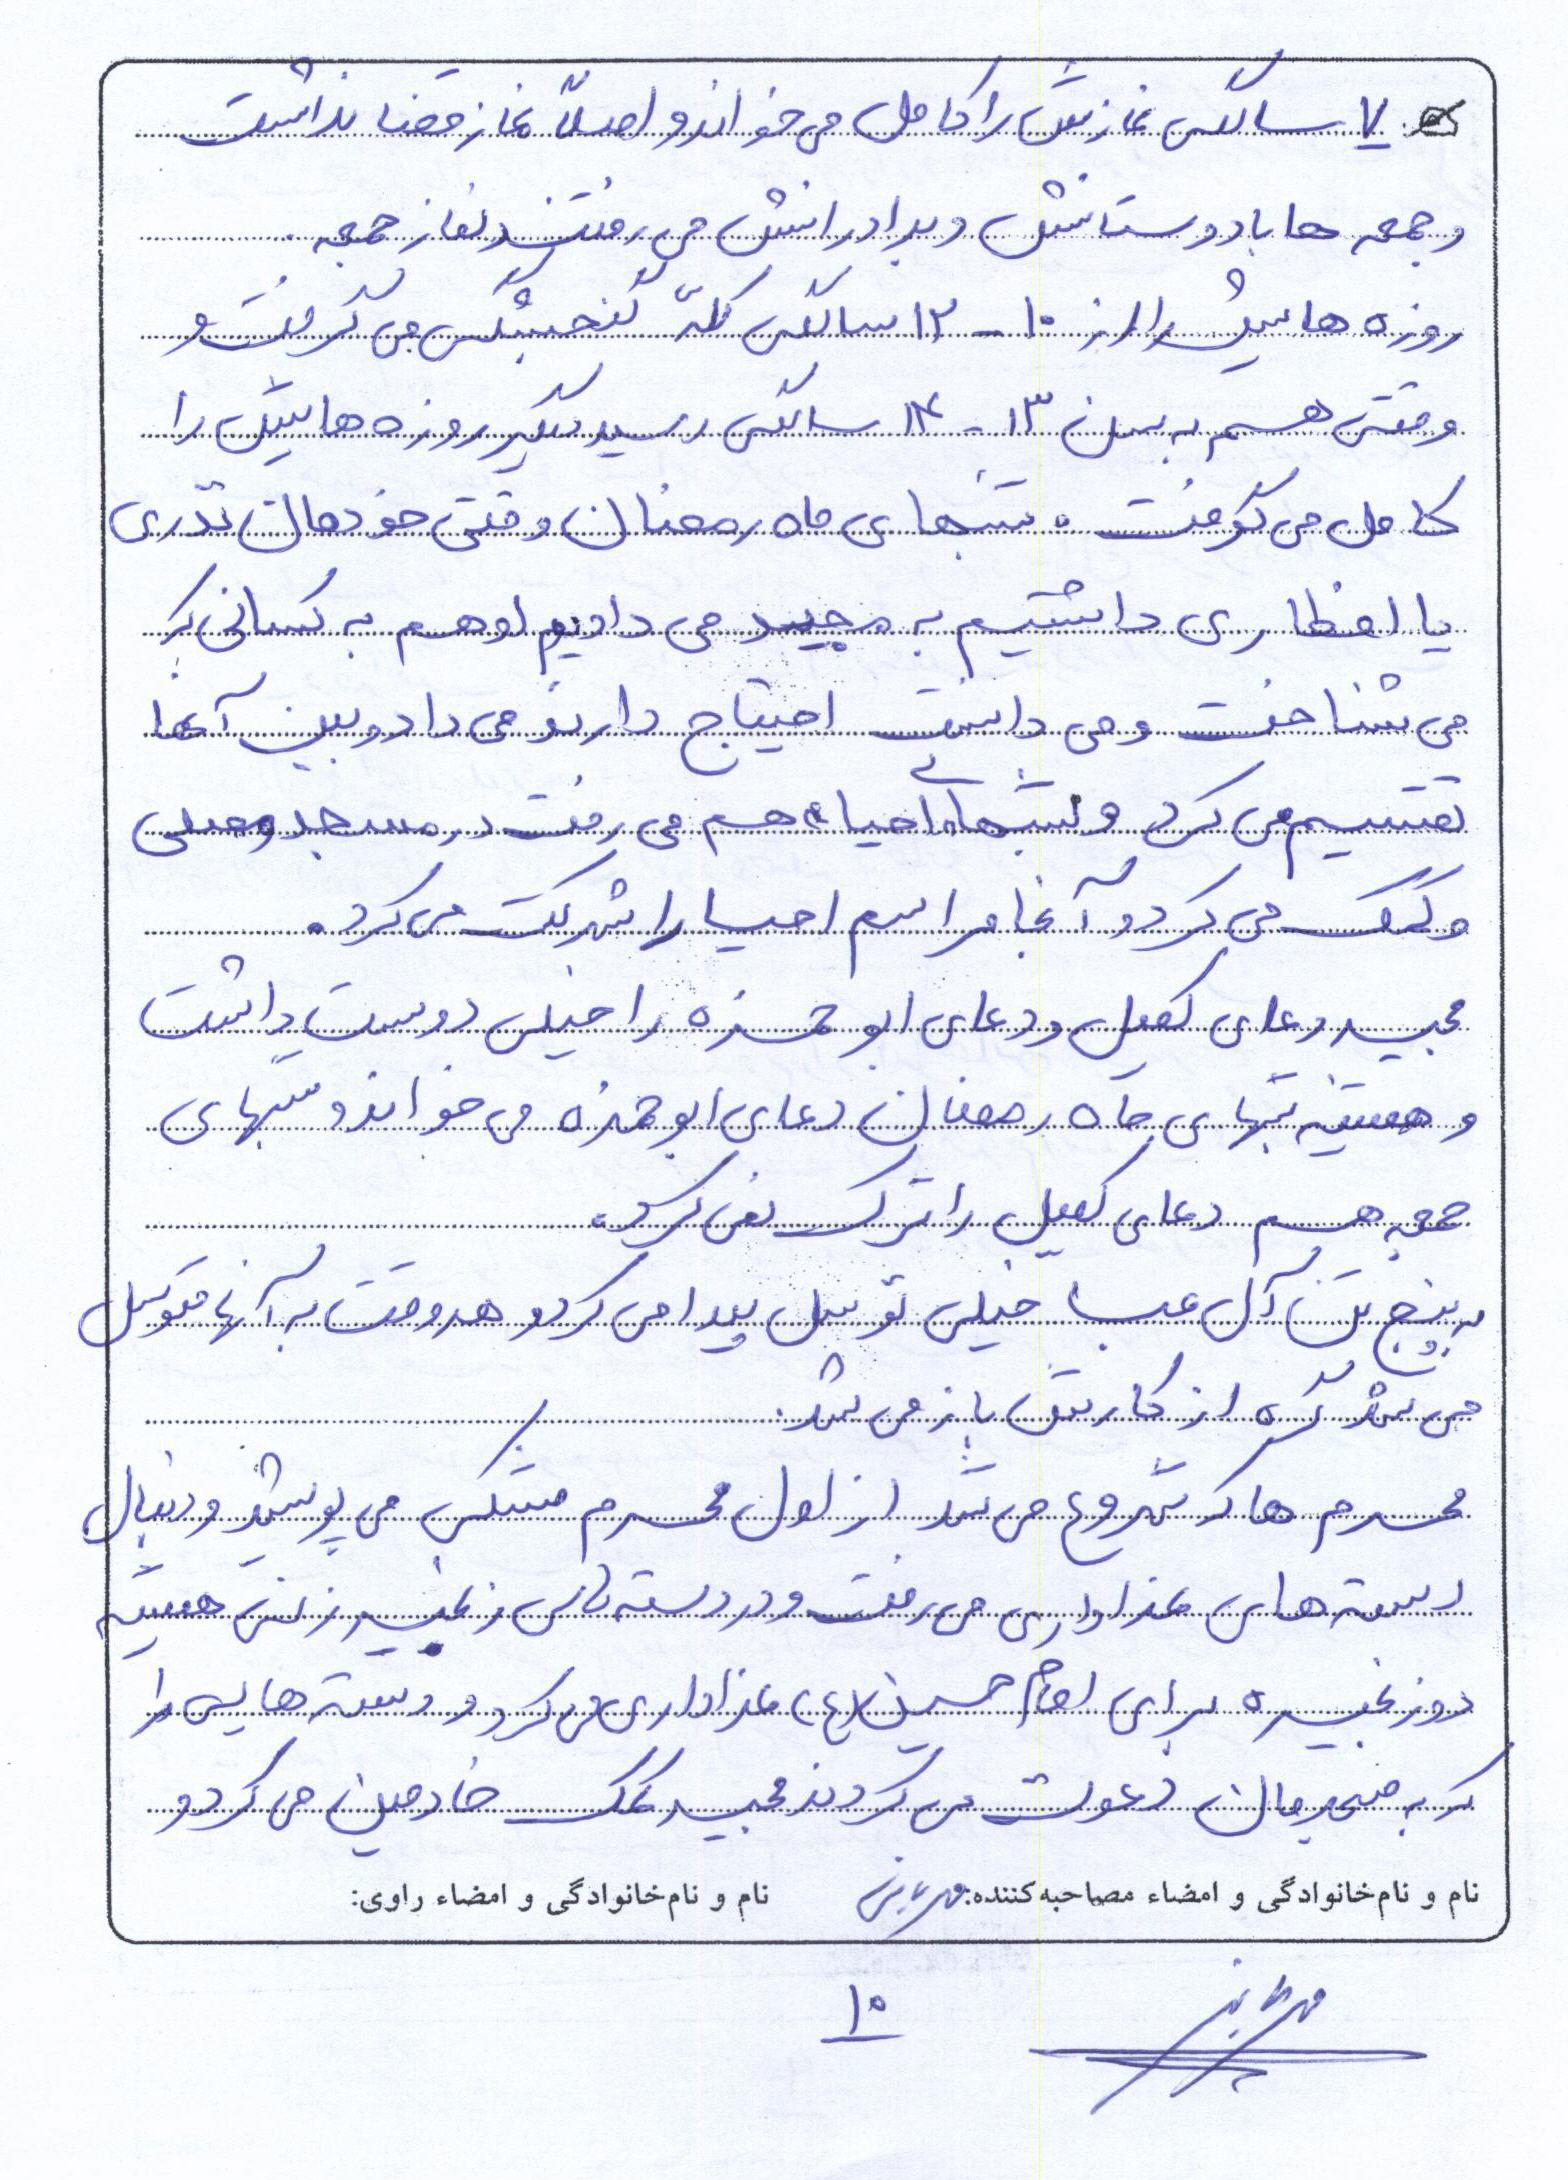 ۷ سالگی نمازش را کامل می خواند و اصلاً نماز قضا نداشت
و جمعه ها با دوستانش و برادرانش می رفتند نماز جمعه .
روزه هایش را از ۱۰ - ۱۲ سالگی کلّه گنجشکی می گرفت و
وقتی هم به سن ۱۳ - ۱۴ سالگی رسید دیگر روزه هایش را
کامل می گرفت . شبهای ماه رمضان وقتی خودمان نذری
یا افطاری داشتیم به مجید می دادیم او هم به کسانی که
می شناخت و می دانست احتیاج دارند می داد و بین آنها
تقسیم می کرد و شبهای احیاء هم می رفت در مسجد و مصلی
و کمک می کرد و آنجا مراسم احیا را شرکت می کرد .
مجید دعای کمیل و دعای ابوحمزه را خیلی دوست داشت
و همیشه شبهای ماه رمضان دعای ابوحمزه می خواند و شبهای
جمعه هم دعای کمیل را ترک نمی کرد .
به پنج تن آل عبا خیلی توسل پیدا می کرد و هر وقت به آنها متوسل
می شد گره از کارش باز می شد .
محرم ها که شروع می شد از اول محرم مشکی می پوشید و دنبال
دسته های عزاداری می رفت و در دسته های زنجیر زنی همیشه
دو زنجیره برای امام حسین (ع) عزاداری می کرد و دسته هایی را
که به دعوت می کردند مجید کمک خادمین می کرد و
نام و نام‌خانوادگی و امضاء مصاحبه‌کننده: نام و نام‌خانوادگی و امضاء راوی:
۱۰